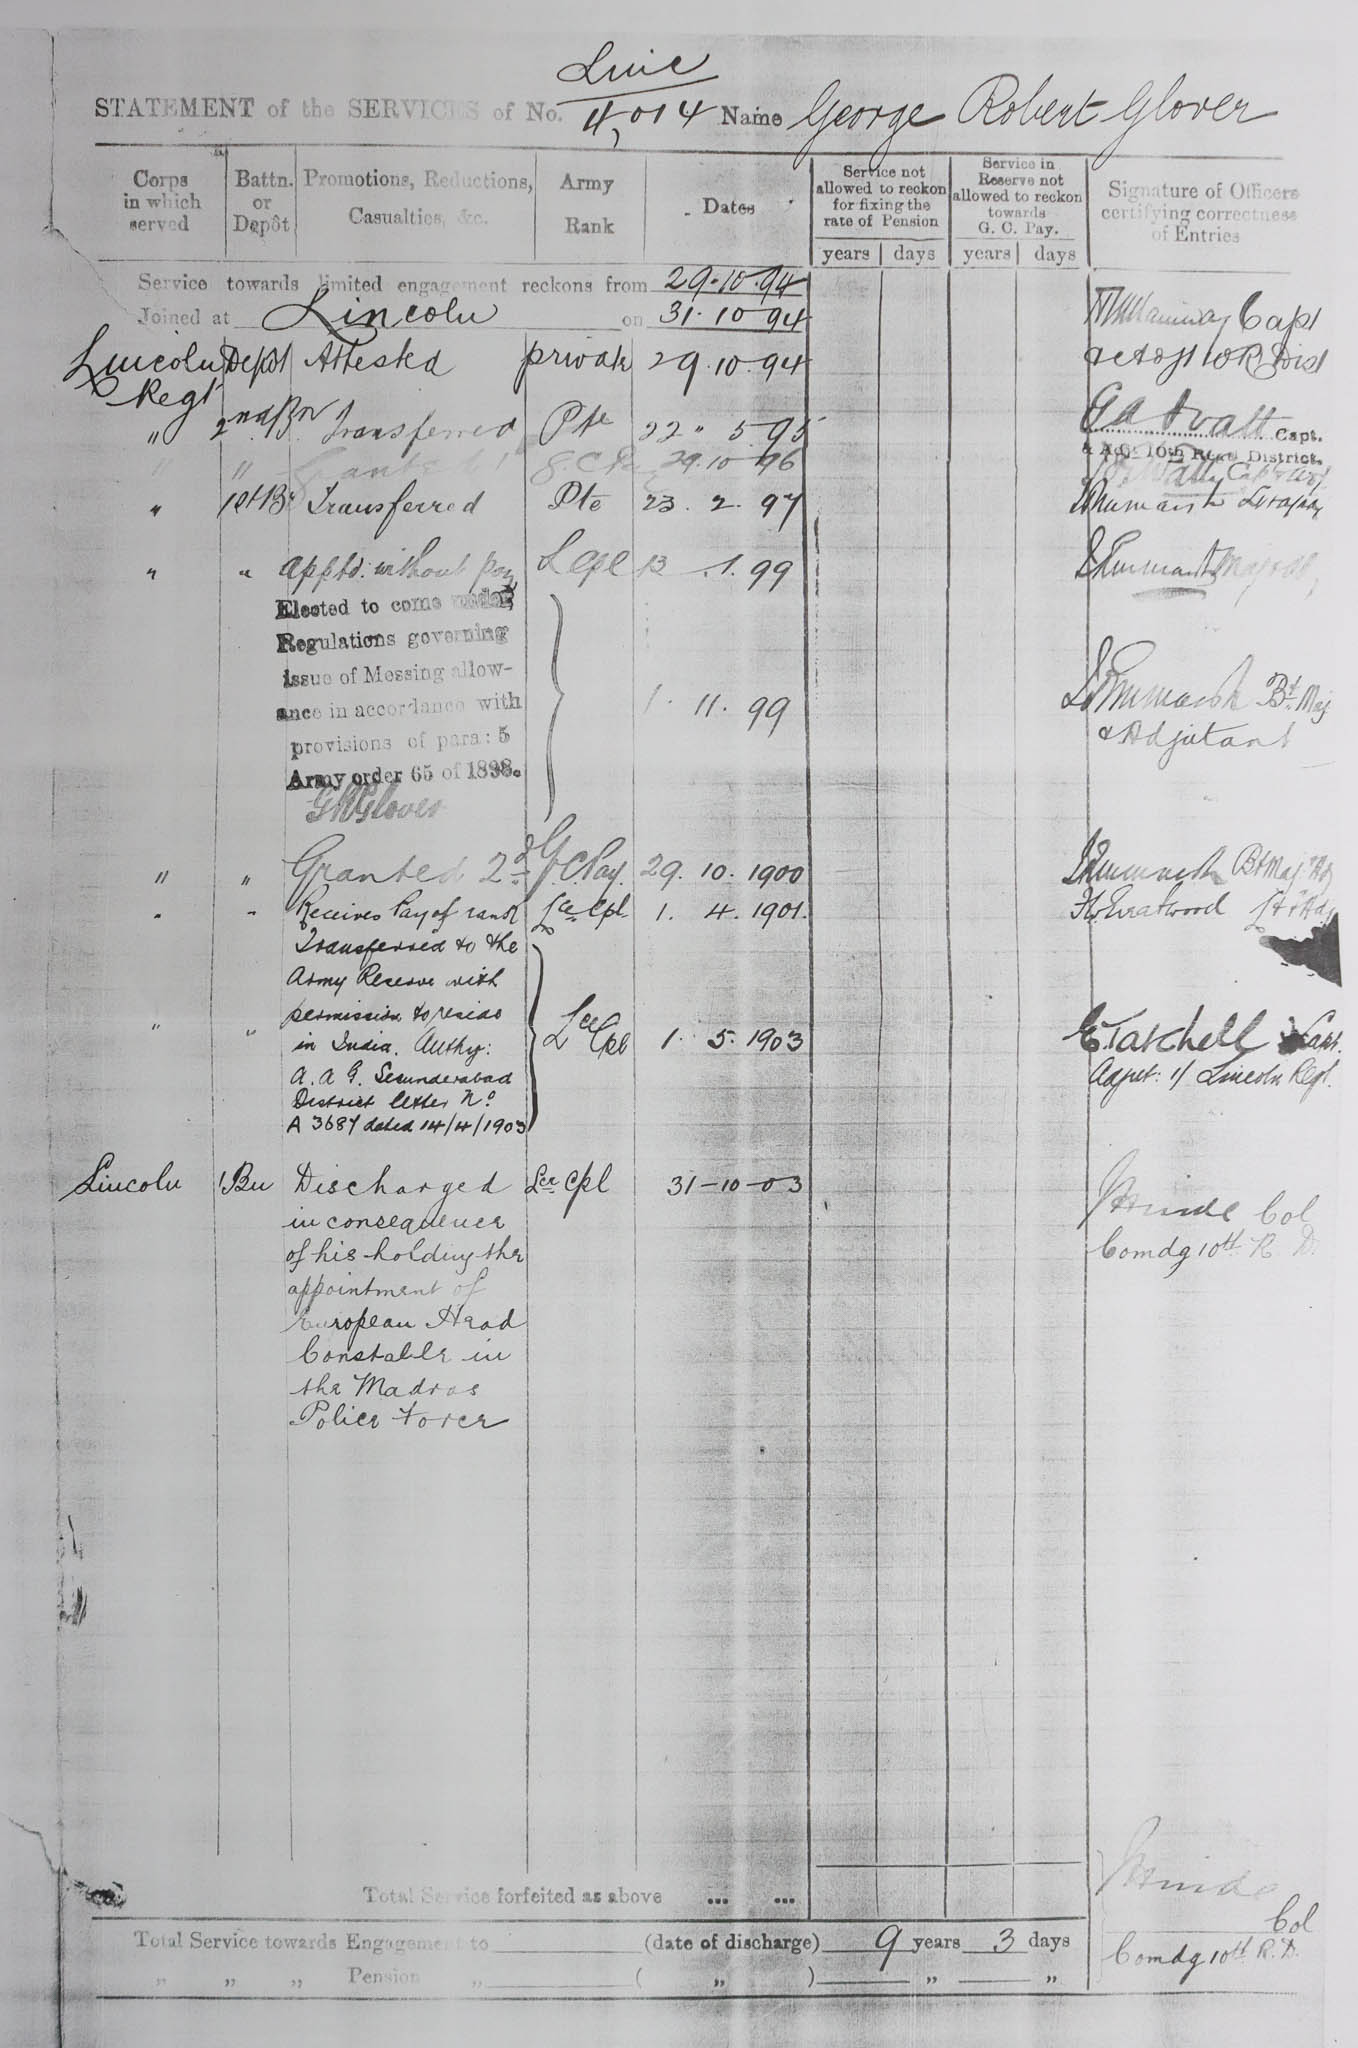 Linc
STATEMENT of the SERVICES of No. 4,014 Name George Robert Glover
Corps in which served
Battn. or Depôt
Promotions, Reductions, Casualties, &c.
Army Rank
Dates
Service not allowed to reckon for fixing the rate of Pension
Service in Reserve not allowed to reckon towards G. C. Pay.
Signature of Officers certifying correctness of Entries
years days years days
Service towards limited engagement reckons from 29.10.94
Joined at Lincoln on 31.10.94
Capt
Lincoln Depôt Attested private 29.10.94
Regt
" 2nd Bn Transferred Pte 22 " 5 95
Capt.
& Adj: 10th Regtl District.
" " Granted 1 G.C.P. 29.10 96
" 1st Bn Transferred Pte 23. 2. 97
" " apptd: without pay L Cpl 13 .1. 99
Elected to come under
Regulations governing
issue of Messing allow-
ance in accordance with
provisions of para: 5
Army order 65 of 1898.
1. 11. 99
Bt Maj
& Adjutant
GRGlover
" " Granted 2nd G.C.Pay. 29. 10. 1900 Bt Maj
" " Receives Pay of rank Lce Cpl 1. 4. 1901.
Transferred to the
Army Reserve with
permission to reside
" " in India. Authy: Lce Cpl 1. 5. 1903 E Tatchell Capt.
A. A G. Secunderabad Adjut: 1/ Lincoln Regt.
District letter No
A 3687 dated 14/4/1903
Lincoln 1 Bn Discharged Lce Cpl 31-10-03
in consequence Col
of his holding the Comdg 10th R. D.
appointment of
European Head
Constable in
the Madras
Police Force
Total Service forfeited as above ... ...
Col
Total Service towards Engagement to (date of discharge) 9 years 3 days
Comdg 10th R. D.
" " " Pension " ( " ) " "